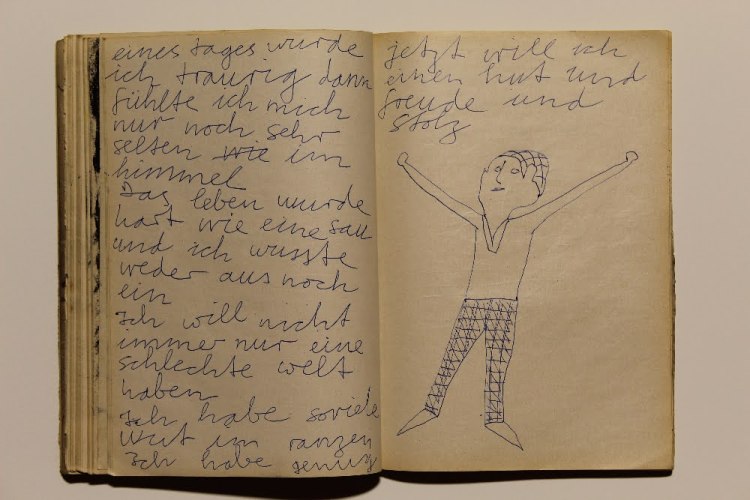 eines tages wurde
ich traurig dann
fühlte ich mich
nur noch sehr
selten wie im
himmel
Das leben wurde
hart wie eine sau
und ich wusste
weder aus noch
ein
Ich will nicht
immer nur eine
schlechte welt
haben
Ich habe soviele
wut im ranzen
Ich habe genug
jetzt will ich
einen hut und
freude und
stolz